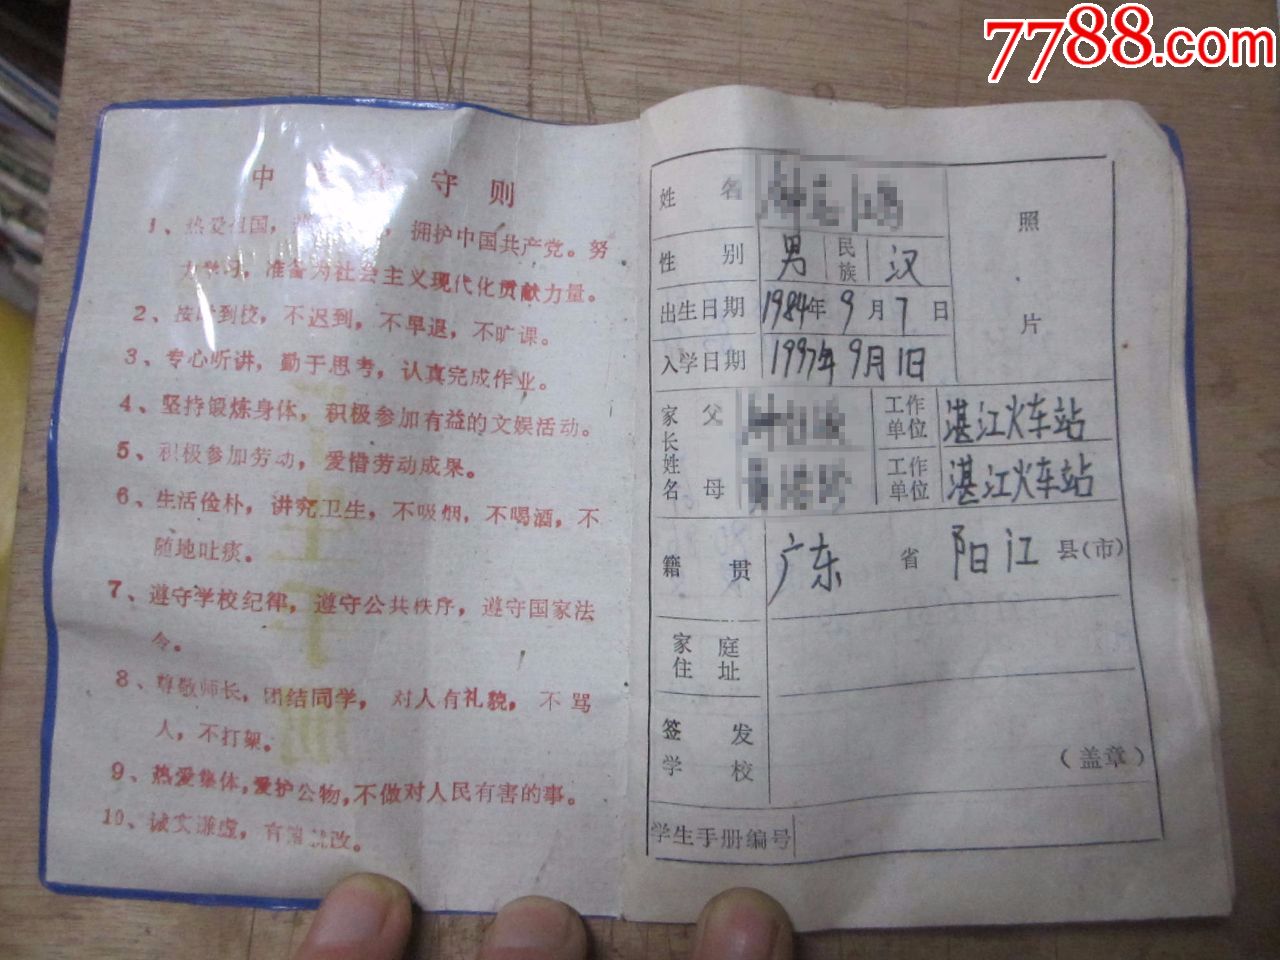 7788.com
中 守则
1、热爱祖国， ，拥护中国共产党。努
力学习，准备为社会主义现代化贡献力量。
2、按时到校，不迟到，不早退，不旷课。
3、专心听讲，勤于思考，认真完成作业。
4、坚持锻炼身体，积极参加有益的文娱活动。
5、积极参加劳动，爱惜劳动成果。
6、生活俭朴，讲究卫生，不吸烟，不喝酒，不
随地吐痰。
7、遵守学校纪律，遵守公共秩序，遵守国家法
令。
8、尊敬师长，团结同学，对人有礼貌，不骂
人，不打架。
9、热爱集体，爱护公物，不做对人民有害的事。
10、诚实谦虚，有错就改。
姓名
照片
性别 男 民族 汉
出生日期 1984年9月7日
入学日期 1997年9月1日
家长姓名 父 工作单位 湛江火车站
母 工作单位 湛江火车站
籍贯 广东 省 阳江 县(市)
家庭住址
签发学校 (盖章)
学生手册编号